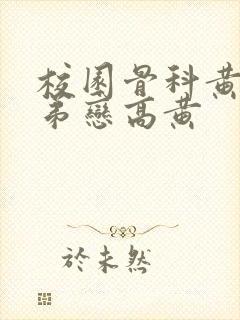 校園骨科黃
弟戀高黃
於未然